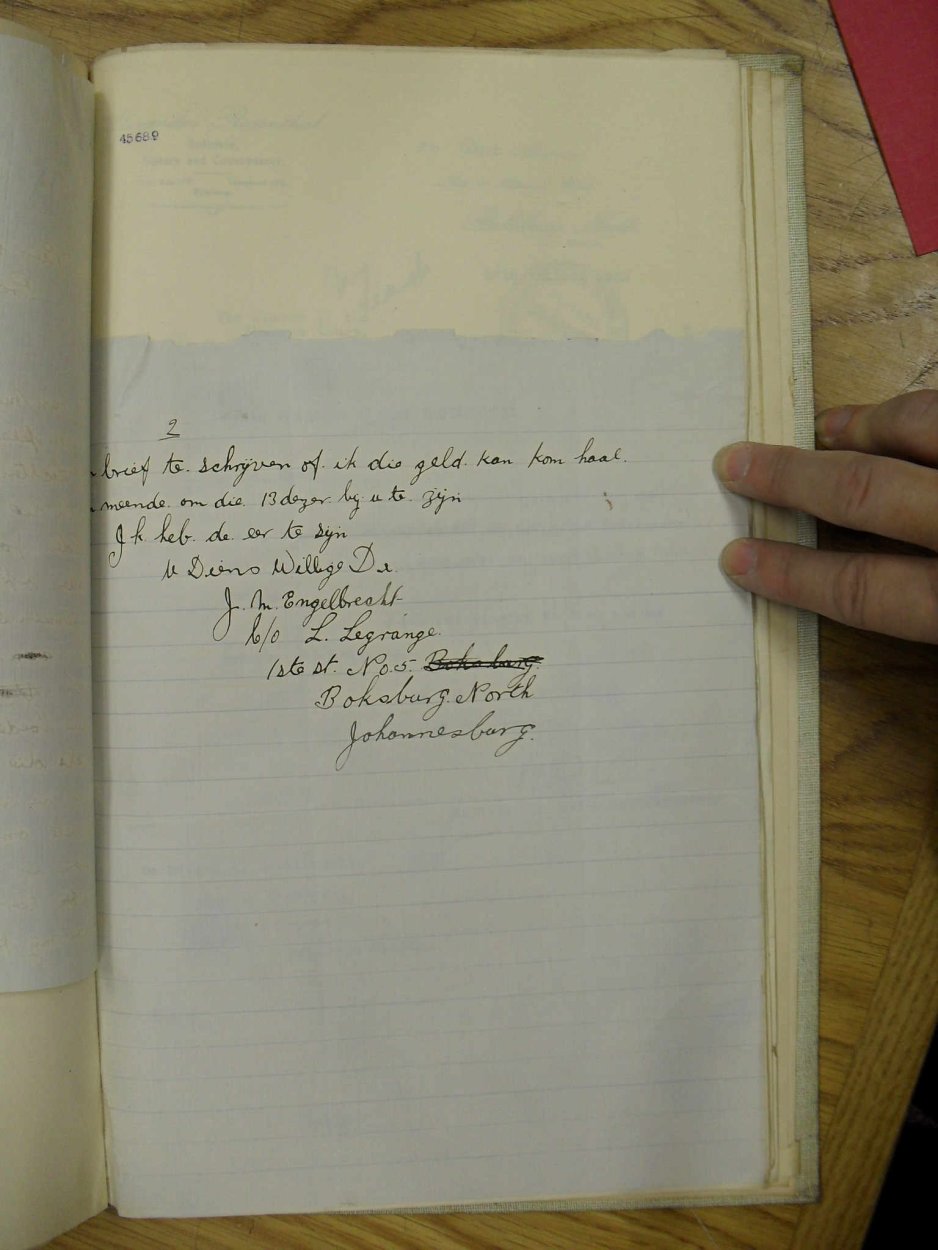 45689
2
brief te schrijven of ik die geld kan kom haal.
meende om die 13 dezer bij u te zijn
Ik heb de eer te sijn
U Diens Willige Dr.
J. M. Engelbrecht
C/o L. Legrange.
1ste st. No. 5. Boksburg.
Boksburg. North
Johannesburg.